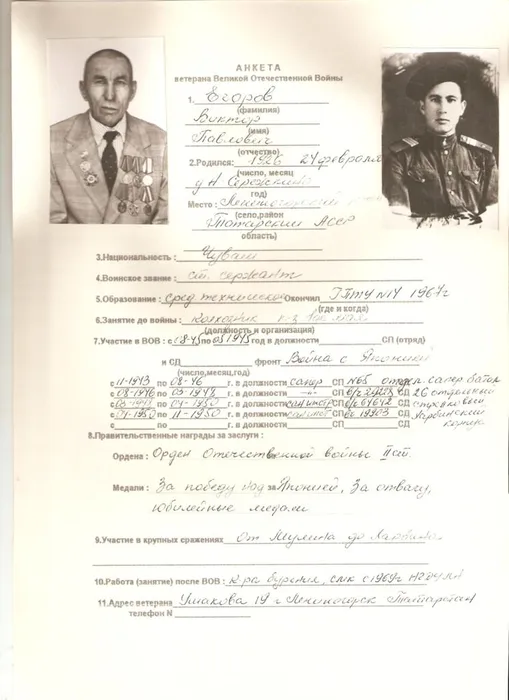 АНКЕТА
ветерана Великой Отечественной Войны
1. Егоров
(фамилия)
Виктор
(имя)
Павлович
(отчество)
2.Родился: 1926 24 февраля
(число, месяц
д Н
год)
Место : Лениногорский
(село,район
Татарский АССР
область)
3.Национальность : Чуваш
4.Воинское звание : ст. сержант
5.Образование : сред техническое Окончил ГПТУ №14 1967г
(где и когда)
6.Занятие до войны : колхозник к-з
(должность и организация)
7.Участие в ВОВ : с 08-45 по 09 1945 год в должности СП (отряд)
и СД фронт Война с Японией
(число,месяц,год)
с 11-1943 по 08-46 г. в должности сапер СП №65 отдел. сапер батал
с 08-1946 по 03-1948 г. в должности —"— СП СД 26 отдельный
с по 04-1950 г. в должности СП СД стрелковый
с 04-1950 по 11-1950 г. в должности СП СД
с по г. в должности СП СД корпус
8.Правительственные награды за заслуги :
Ордена : Орден Отечественной войны II ст.
Медали : За победу над за Японией, За отвагу,
юбилейные медали
9.Участие в крупных сражениях От Мулина до Харбина
10.Работа (занятие) после ВОВ : бурения, с 1967г
11.Адрес ветерана Ушакова 19 г Лениногорск Татарстан
телефон N